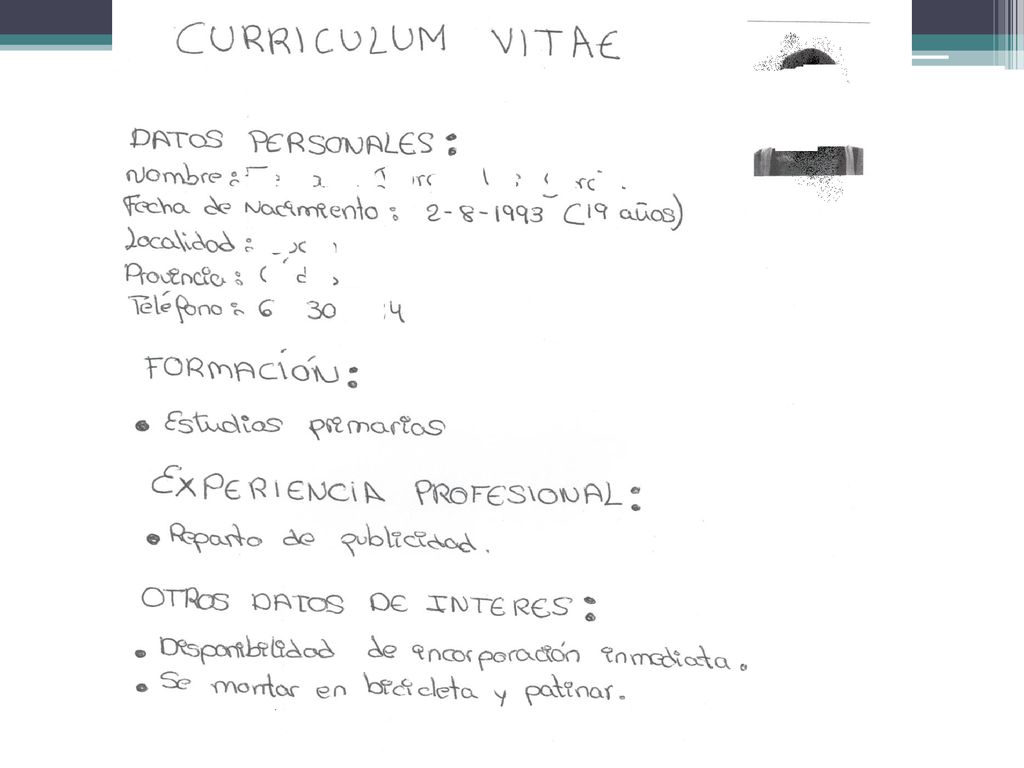 CURRICULUM VITAE
DATOS PERSONALES:
Nombre:
Fecha de Nacimiento: 2-8-1993 (19 años)
Localidad:
Provincia:
Teléfono: 6 30 4
FORMACIÓN:
• Estudios primarios
EXPERIENCIA PROFESIONAL:
• Reparto de publicidad.
OTROS DATOS DE INTERES:
• Disponibilidad de incorporación inmediata.
• Se montar en bicicleta y patinar.